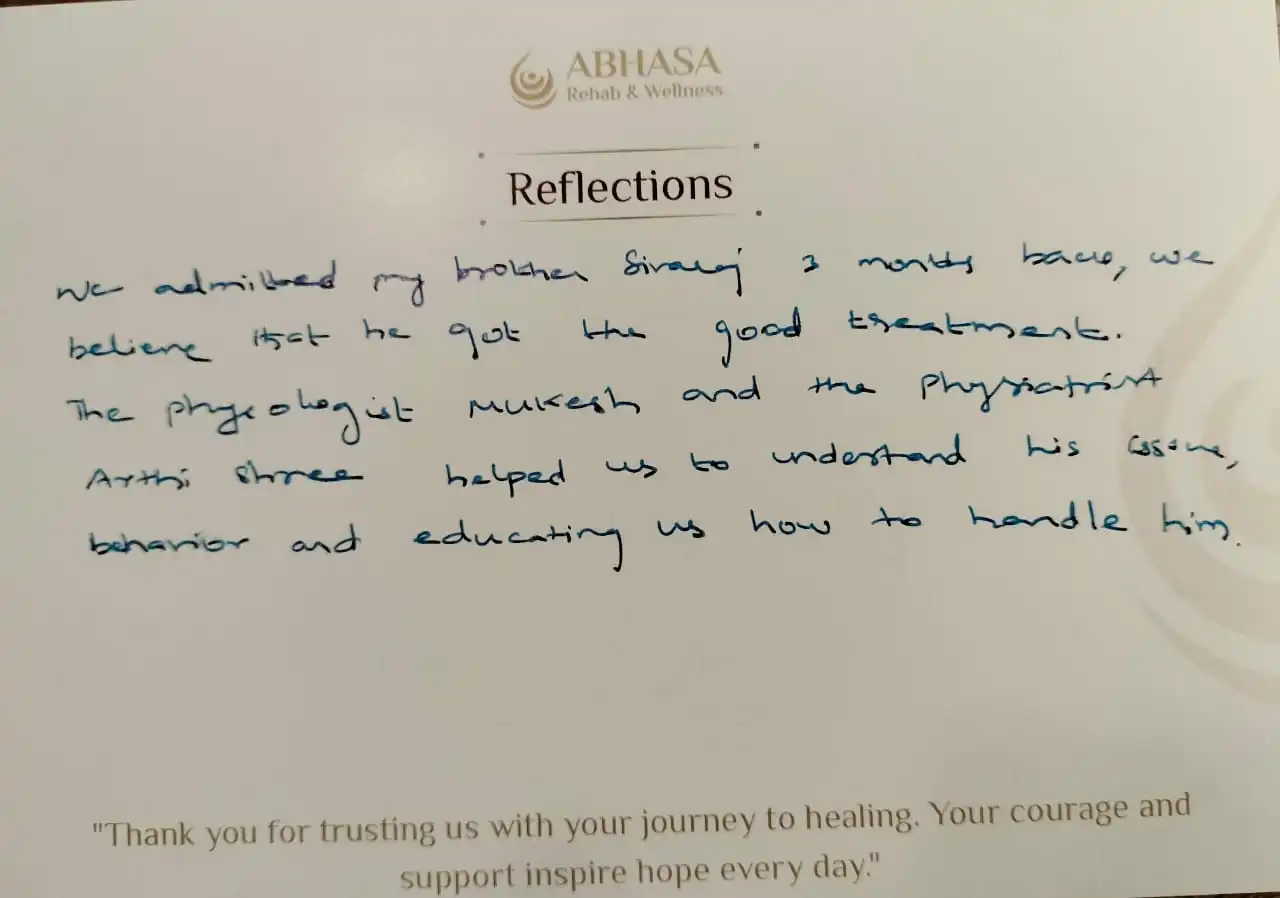 ABHASA
Rehab & Wellness
Reflections
We admitted my brother Siraj 3 months back, we
believe that he got the good treatment.
The phycologist Mukesh and the Physiatrist
Arthi Shree helped us to understand his issue,
behavior and educating us how to handle him.
"Thank you for trusting us with your journey to healing. Your courage and
support inspire hope every day."